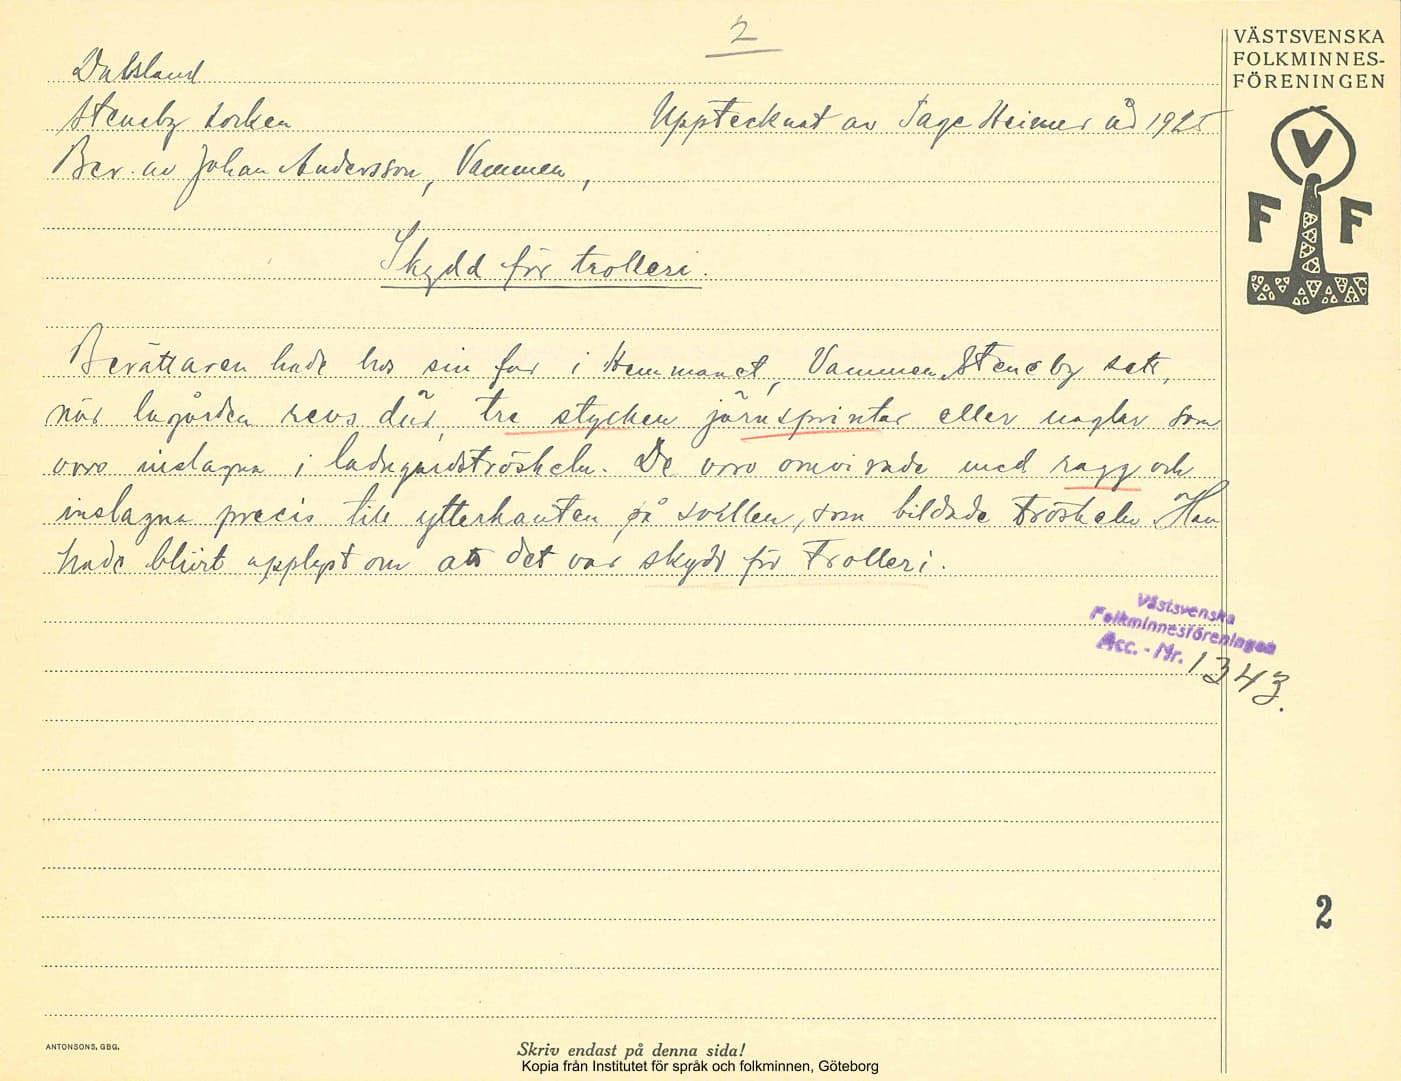 2
VÄSTSVENSKA
FOLKMINNES-
FÖRENINGEN
Dalsland
Steneby socken
Upptecknat av Tage Heimer år 1925
Ber. av Johan Andersson, Vammen,
V
F F
Skydd för trolleri.
Berättaren hade hos sin far i Hemmanet, Vammen, Steneby sett,
när lagården revs där, tre stycken järnsprintar eller naglar som
voro inslagna i ladugårdströskeln. De voro omvirade med ragg och
inslagna precis till ytterkanten på svillen, som bildade tröskeln. Han
hade blivit upplyst om att det var skydd för Trolleri.
Västsvenska
Folkminnesföreningen
Acc. - Nr. 1343.
2
ANTONSONS, GBG.
Skriv endast på denna sida!
Kopia från Institutet för språk och folkminnen, Göteborg